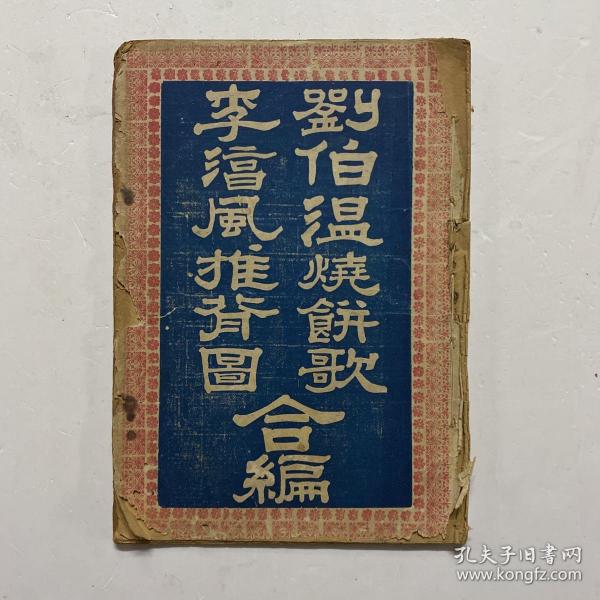 劉伯溫燒餅歌
李淳風推背圖
合編
孔夫子旧书网
www.kongfz.com